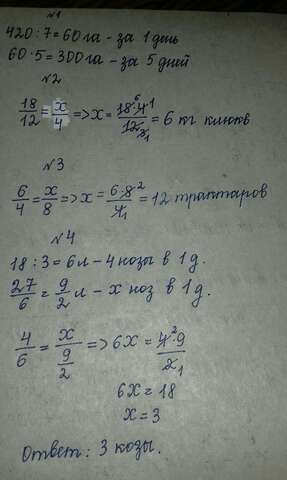 №1
420:7=60га - за 1 день
60·5=300га - за 5 дней
№2
18/12 = x/4 => x = 18·4/12 = 6 кг клюков
№3
6/4 = x/8 => x = 6·8/4 = 12 тракторов
№4
18:3=6л - 4 козы в 1 д.
27/6 = 9/2 л - x коз в 1 д.
4/6 = x/(9/2) => 6x = 4·9/2
6x = 18
x = 3
Ответ: 3 козы.